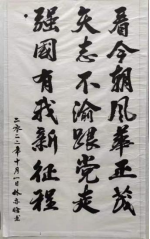 看今朝风华正茂
矢志不渝跟党走
强國有我新征程
二零二二年十月一日林